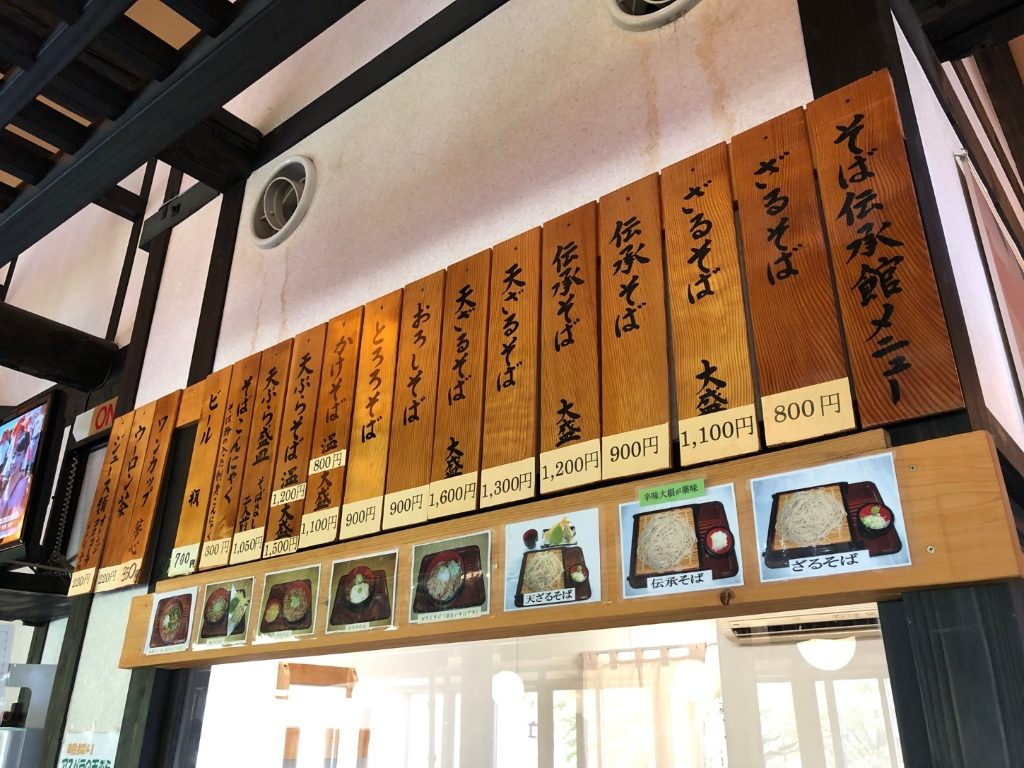 そば伝承館メニュー
ざるそば
800円
ざるそば 大盛
1,100円
伝承そば
900円
伝承そば 大盛
1,200円
天ざるそば
1,300円
天ざるそば 大盛
1,600円
おろしそば
900円
とろろそば
900円
かけそば 温
800円
大盛
1,100円
天ぷらそば 温
1,200円
大盛
1,500円
天ぷら盛
1,050円
そばこんにゃく
300円
ビール 瓶
700円
ワンカップ
350
ウーロン茶
220円
ジュース類
220円
ON
辛味大根が薬味
ざるそば
伝承そば
天ざるそば